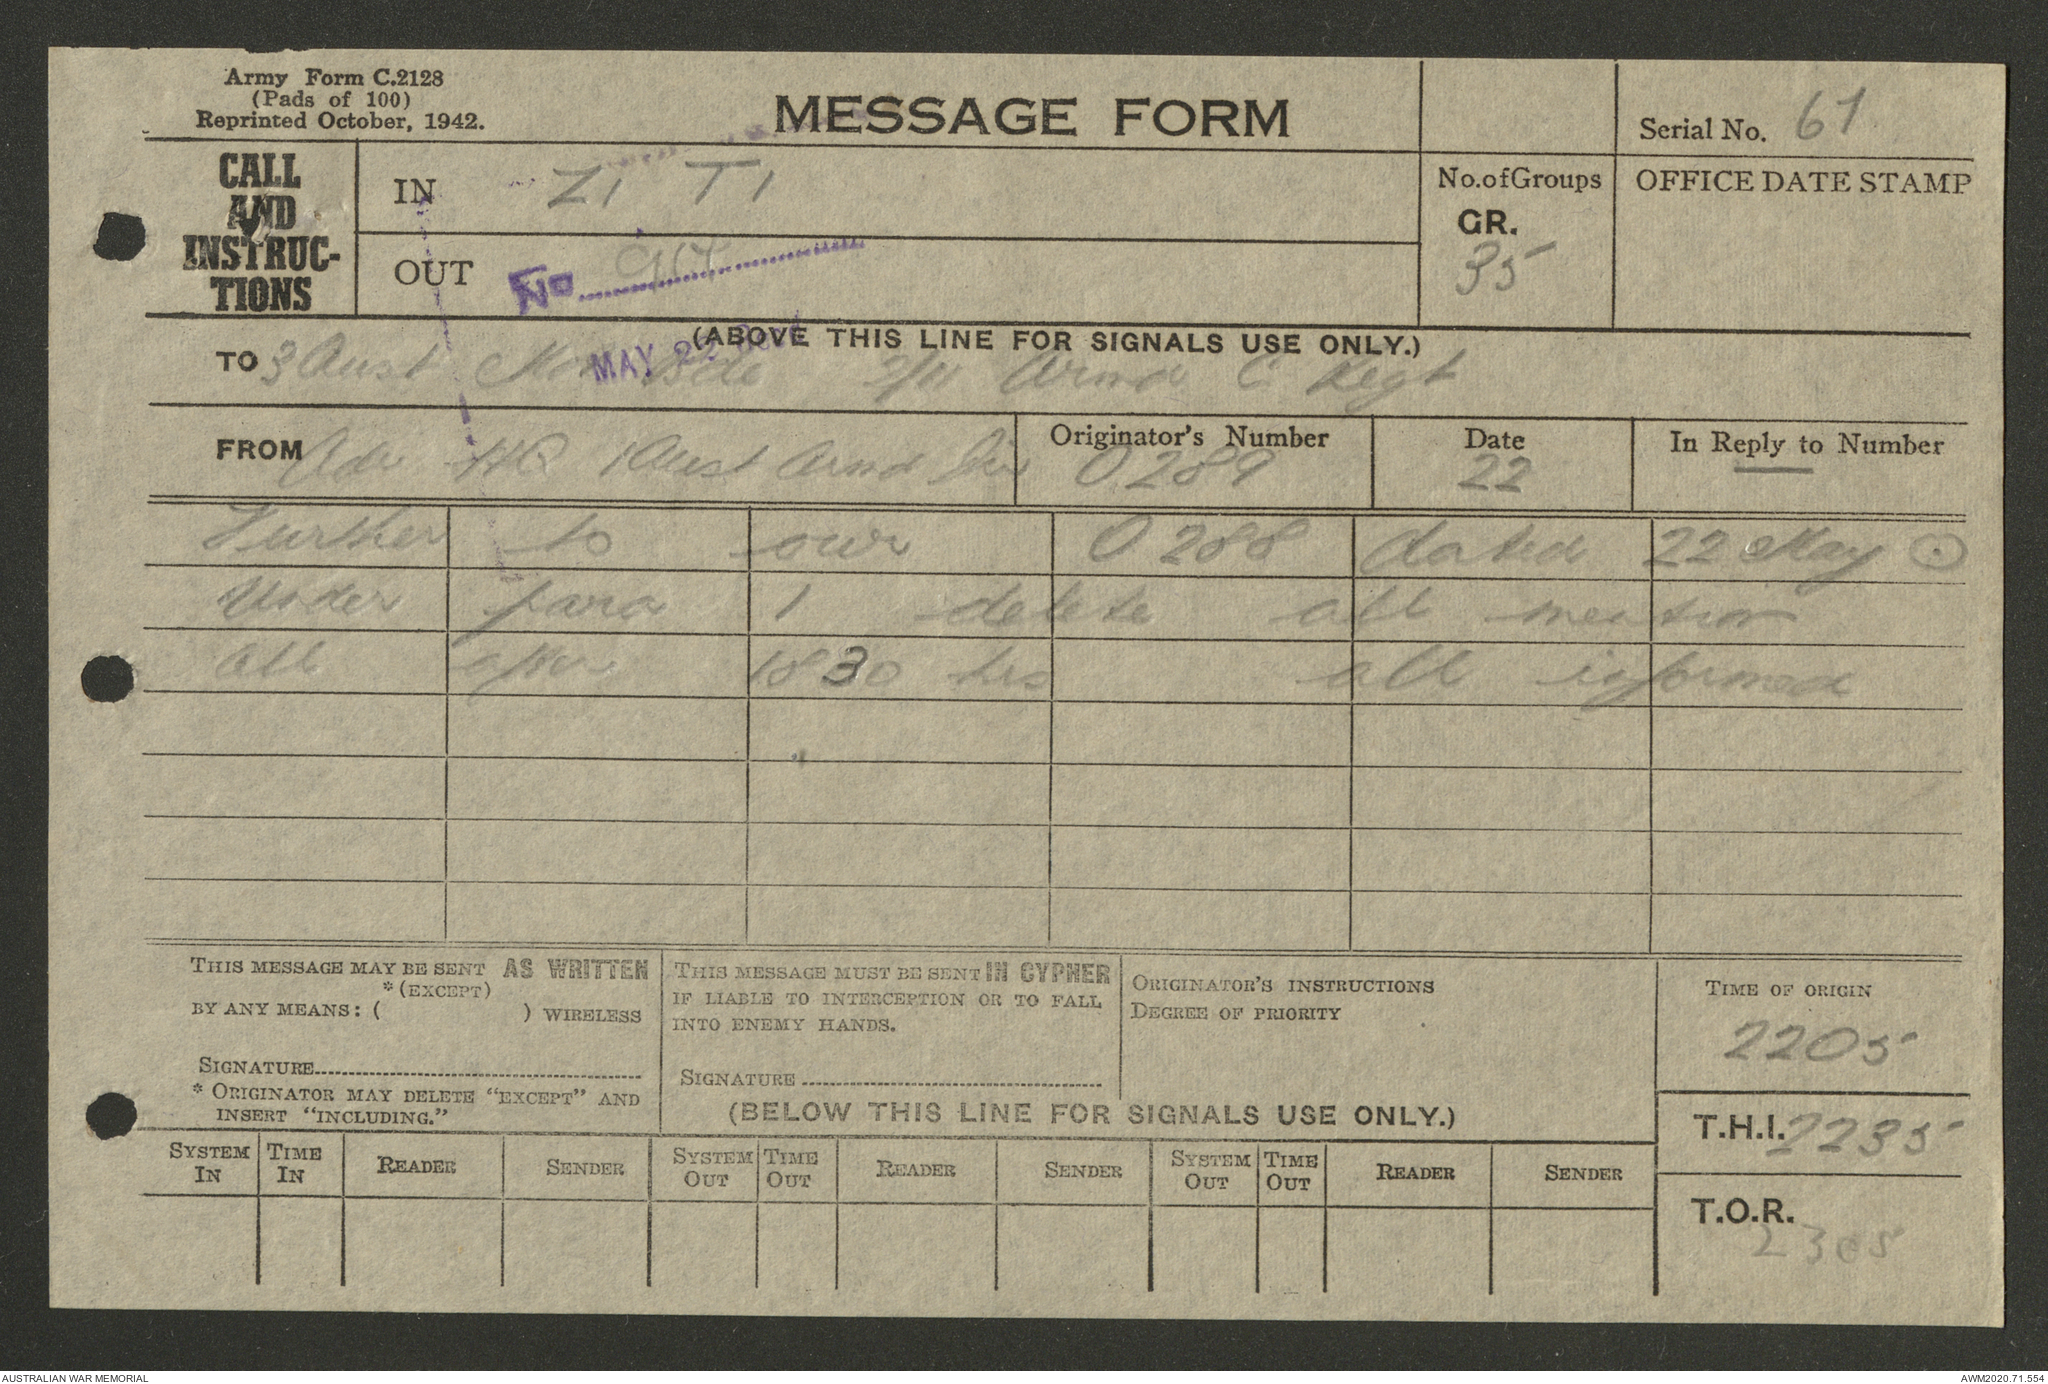 Army Form C.2128
(Pads of 100)
Reprinted October, 1942.
MESSAGE FORM
Serial No. 61
CALL
AND
INSTRUC-
TIONS
IN ZI TI
No. of Groups
GR.
35
OFFICE DATE STAMP
OUT
No
(ABOVE THIS LINE FOR SIGNALS USE ONLY.)
MAY
TO 3 Aust Mot Bde 2/11 Armd C Regt
FROM Adv HQ 1 Aust Armd Div
Originator's Number
O 289
Date
22
In Reply to Number
Further to our O 288 dated 22 May
Under para 1 delete all mention
all after 1830 hrs all informed
THIS MESSAGE MAY BE SENT AS WRITTEN
*(EXCEPT)
BY ANY MEANS: ( ) WIRELESS
SIGNATURE
* ORIGINATOR MAY DELETE "EXCEPT" AND
INSERT "INCLUDING."
THIS MESSAGE MUST BE SENT IN CYPHER
IF LIABLE TO INTERCEPTION OR TO FALL
INTO ENEMY HANDS.
SIGNATURE
ORIGINATOR'S INSTRUCTIONS
DEGREE OF PRIORITY
TIME OF ORIGIN
2205
(BELOW THIS LINE FOR SIGNALS USE ONLY.)
T.H.I. 2235
T.O.R.
2305
SYSTEM IN TIME IN READER SENDER SYSTEM OUT TIME OUT READER SENDER SYSTEM OUT TIME OUT READER SENDER
AUSTRALIAN WAR MEMORIAL
AWM2020.71.554